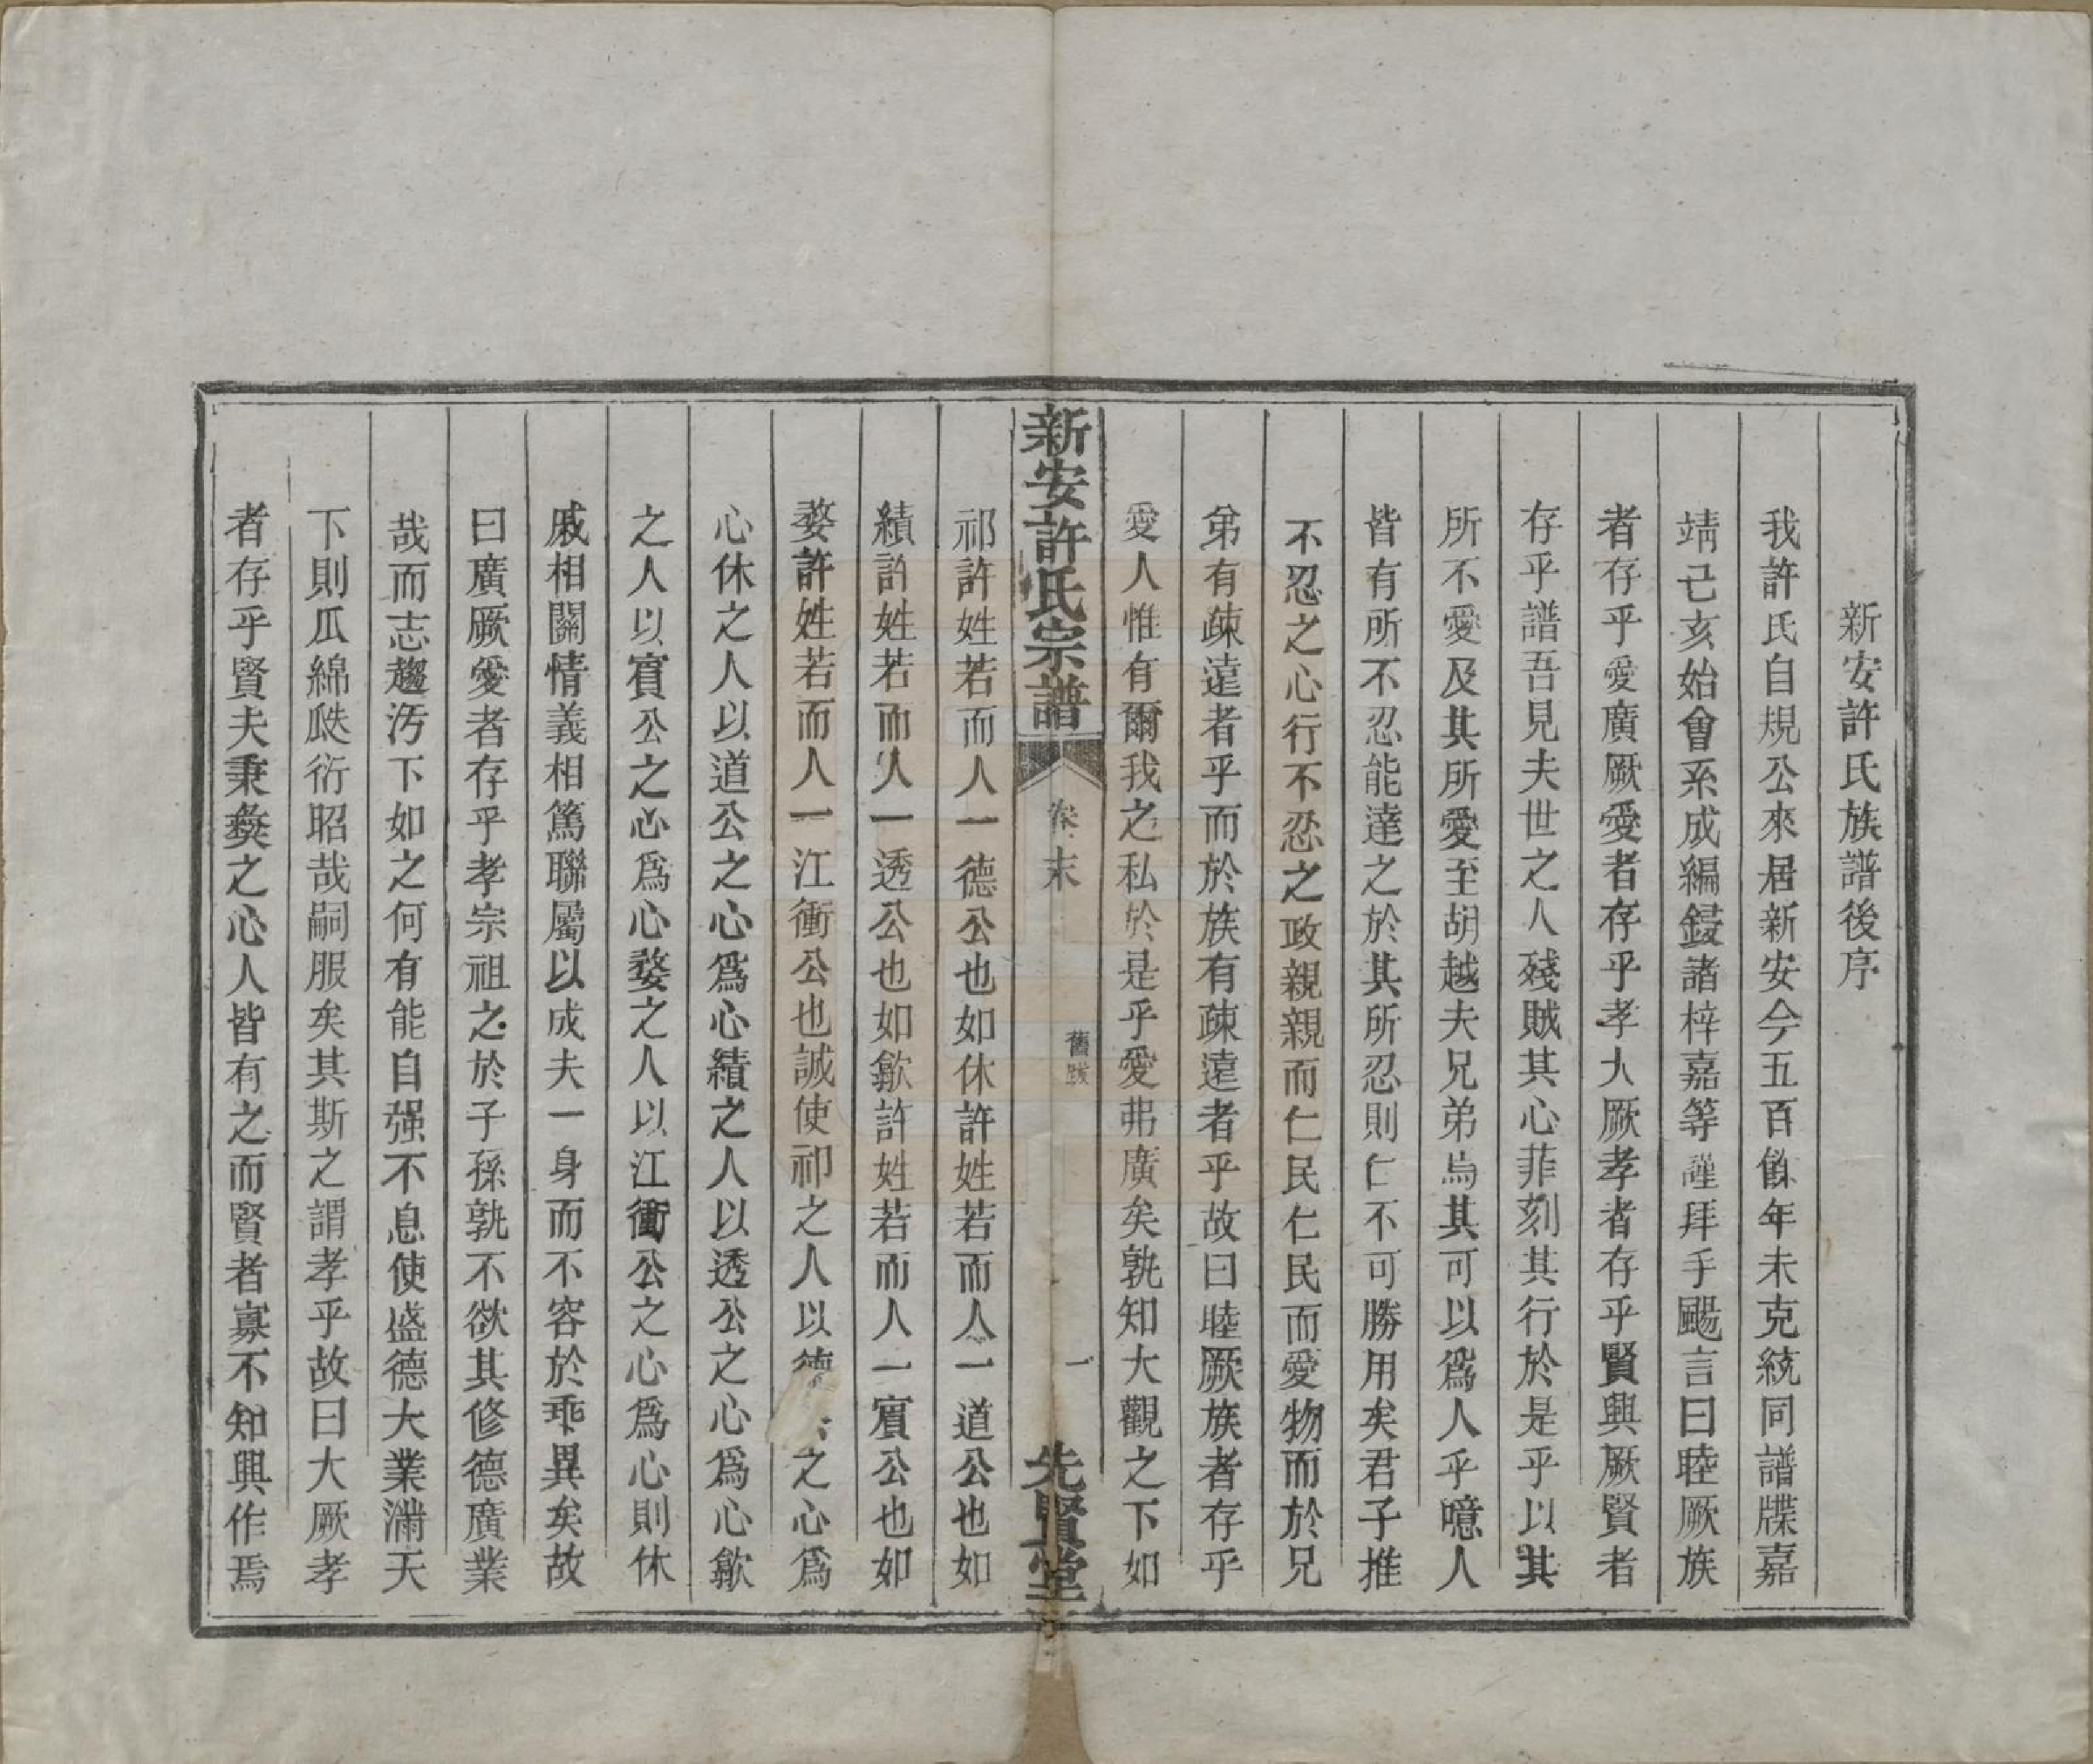 新安許氏族譜後序
我許氏自規公來居新安今五百餘年未克統同譜牒嘉
靖己亥始會系成編鋟諸梓嘉等謹拜手颺言曰睦厥族
者存乎愛廣厥愛者存乎孝大厥孝者存乎賢興厥賢者
存乎譜吾見夫世之人殘賊其心菲刻其行於是乎以其
所不愛及其所愛至胡越夫兄弟烏其可以爲人乎噫人
皆有所不忍能達之於其所忍則仁不可勝用矣君子推
不忍之心行不忍之政親親而仁民仁民而愛物而於兄
弟有疎遠者乎而於族有疎遠者乎故曰睦厥族者存乎
愛人惟有爾我之私於是乎愛弗廣矣孰知大觀之下如
新安許氏宗譜
卷末
舊跋
一
先賢堂
祁許姓若而人一德公也如休許姓若而人一道公也如
績許姓若而人一透公也如歙許姓若而人一賓公也如
婺許姓若而人一江衝公也誠使祁之人以德之心爲
心休之人以道公之心爲心績之人以透公之心爲心歙
之人以賓公之心爲心婺之人以江衝公之心爲心則休
戚相關情義相篤聯屬以成夫一身而不容於乖異矣故
曰廣厥愛者存乎孝宗祖之於子孫孰不欲其修德廣業
哉而志趨汚下如之何有能自强不息使盛德大業滿天
下則瓜綿瓞衍昭哉嗣服矣其斯之謂孝乎故曰大厥孝
者存乎賢夫秉彜之心人皆有之而賢者寡不知興作焉